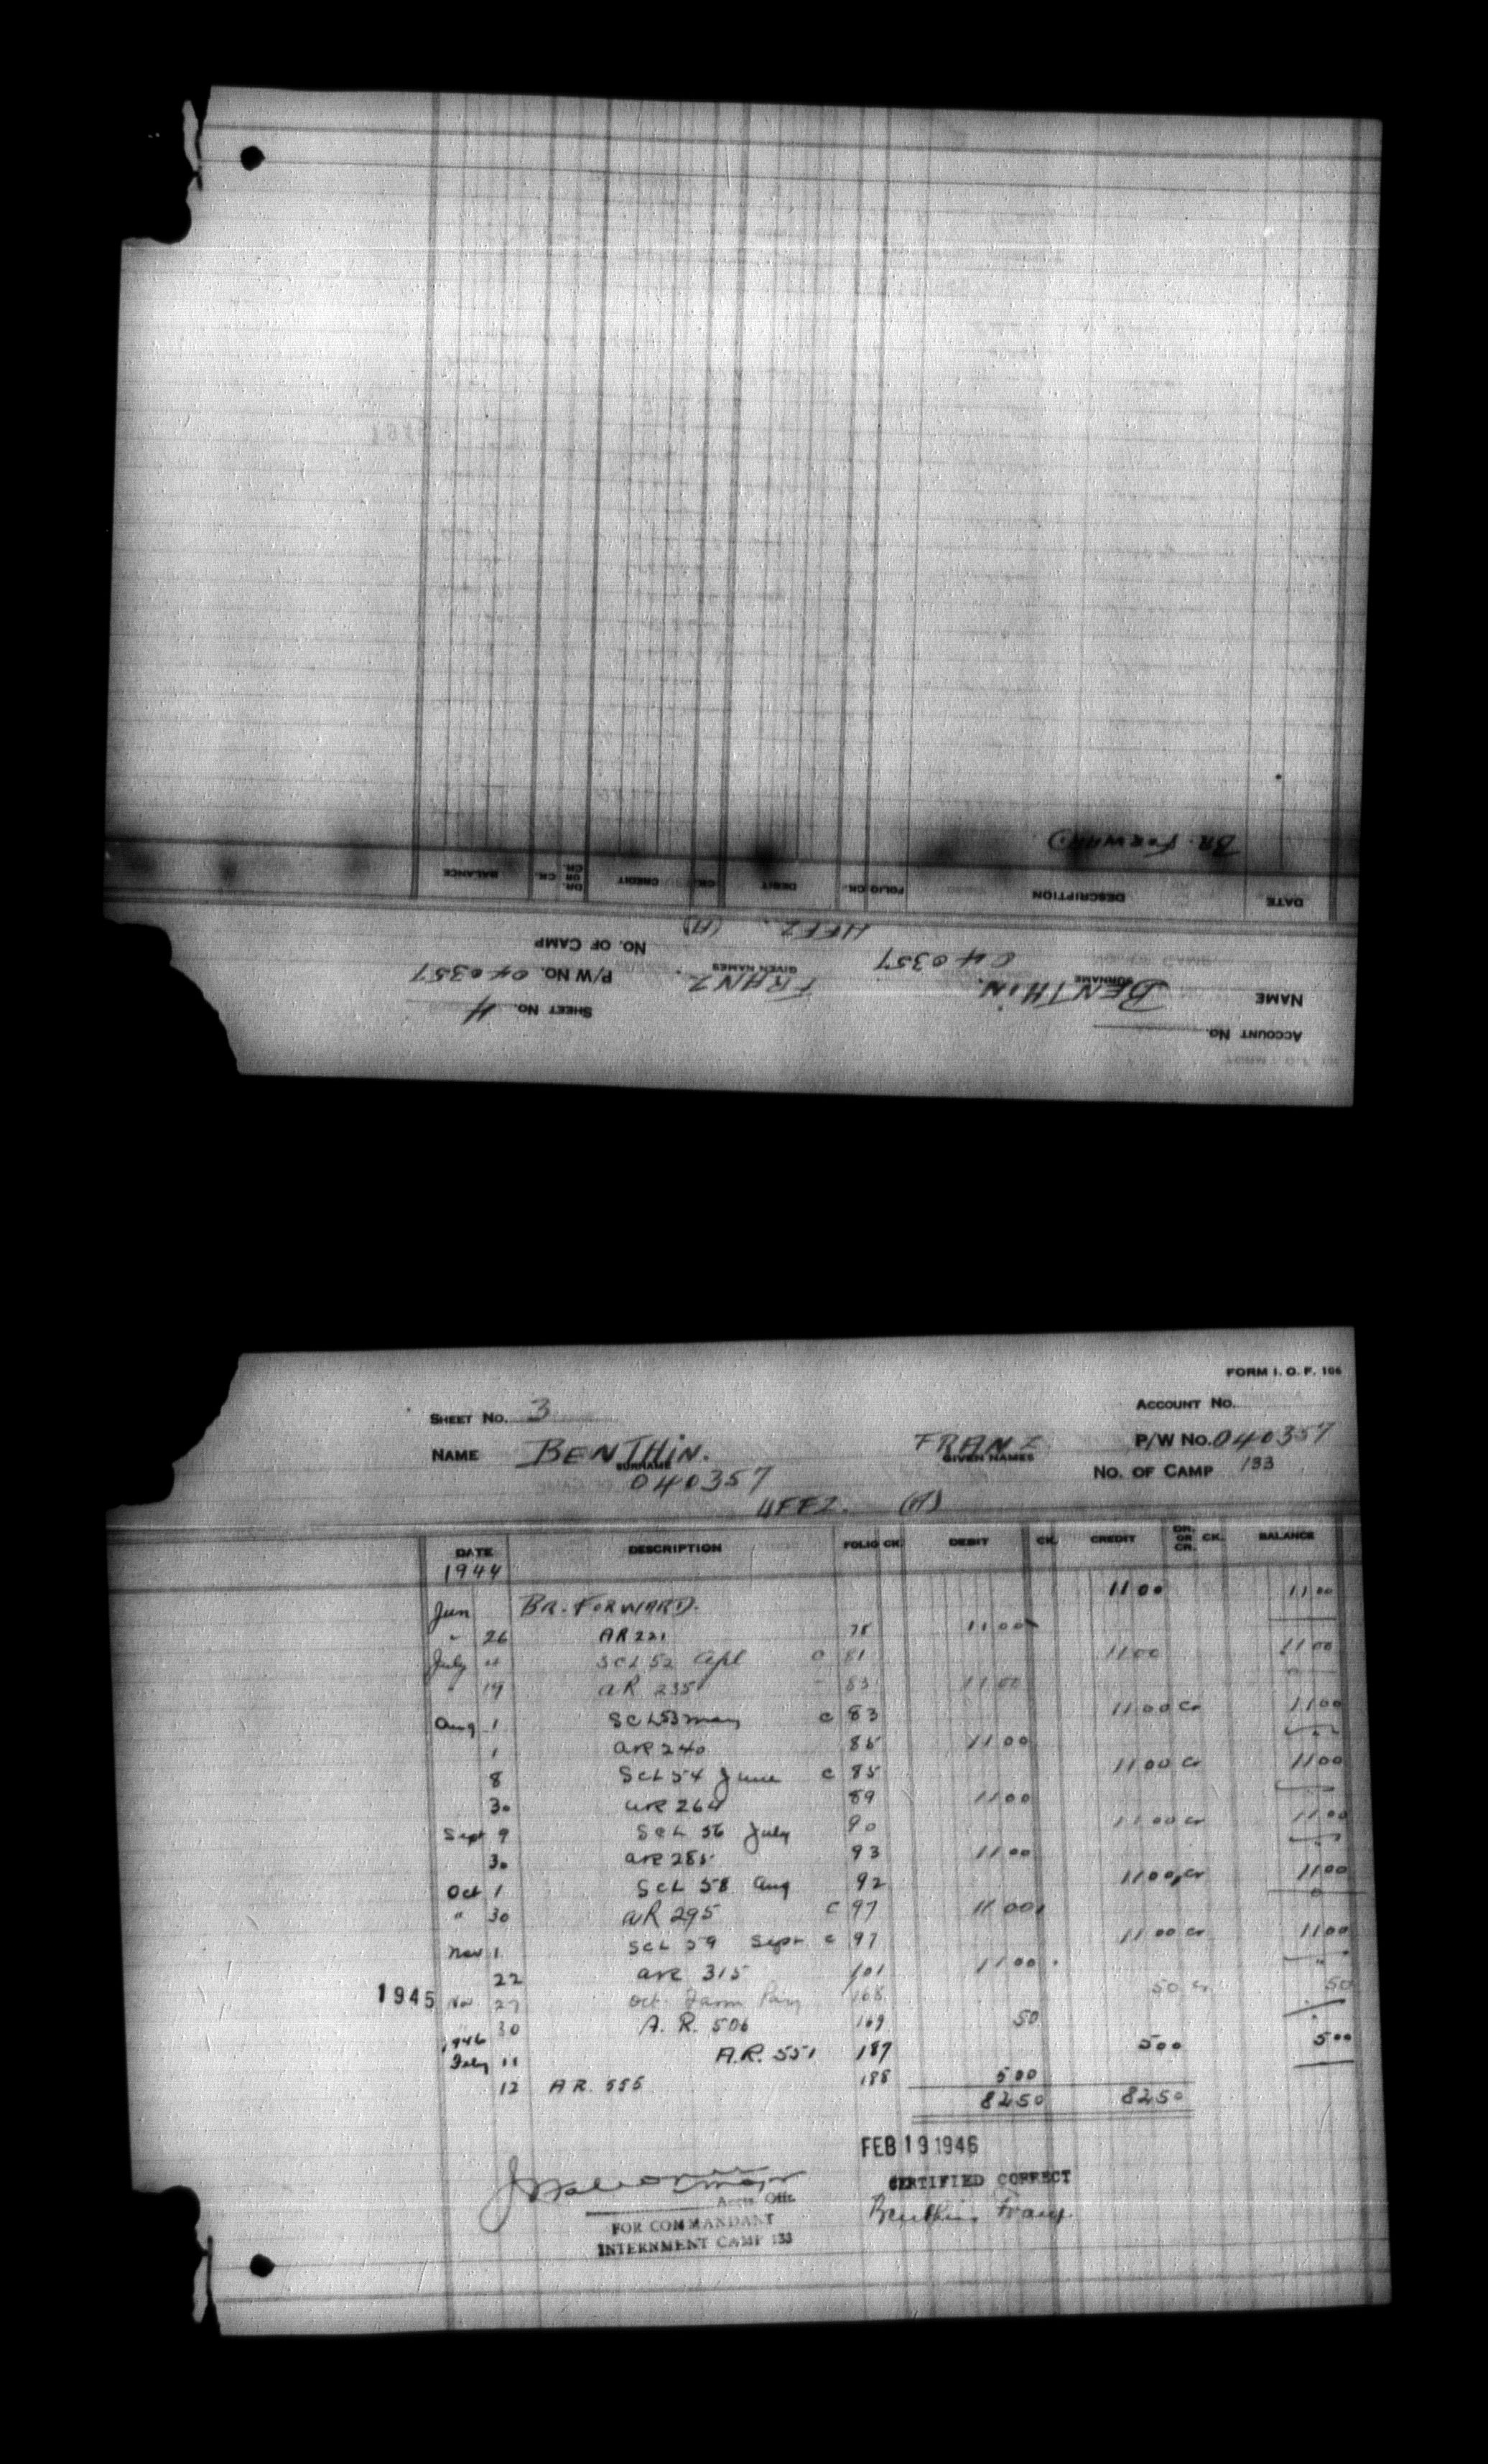 ACCOUNT NO.
SHEET NO. 4
NAME BENTHIN. FRANZ P/W NO. 040357
SURNAME GIVEN NAMES
040357 NO. OF CAMP
UFFZ. (A)
DATE DESCRIPTION FOLIO CK. DEBIT CK. CREDIT DR. OR CR. CK. BALANCE
BR. FORWARD
FORM I. O. F. 106
SHEET NO. 3 ACCOUNT NO.
NAME BENTHIN. FRANZ P/W NO. 040357
SURNAME GIVEN NAMES
040357 NO. OF CAMP 133
UFFZ. (A)
DATE DESCRIPTION FOLIO CK. DEBIT CK. CREDIT DR. OR CR. CK. BALANCE
1944
Jun BR. FORWARD. 11 00 11 00
" 26 AR 221 78 11 00
July SCL 52 Apl C 81 11 00 11 00
" 19 AR 235 83 11 00
Aug 1 SCL 53 May C 83 11 00 Cr 11 00
1 AR 240 85 11 00
8 SCL 54 June C 85 11 00 Cr 11 00
30 AR 264 89 11 00
Sept 9 SCL 56 July 90 11 00 Cr 11 00
30 AR 285 93 11 00
Oct 1 SCL 58 Aug 92 11 00 Cr 11 00
" 30 AR 295 C 97 11 00
Nov 1 SCL 59 Sept C 97 11 00 Cr 11 00
22 AR 315 101 11 00
1945 Nov 27 Oct. Farm Pay 168 50 Cr 50
30 A. R. 506 169 50
1946
Feby 11 A.R. 551 187 5 00 5 00
12 A R. 555 188 5 00
82 50 82 50
FEB 19 1946
CERTIFIED CORRECT
Major
Accts. Offr.
Benthin Franz
FOR COMMANDANT
INTERNMENT CAMP 133